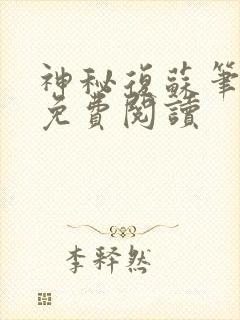 神秘復蘇筆
免費閱讀
李釋然